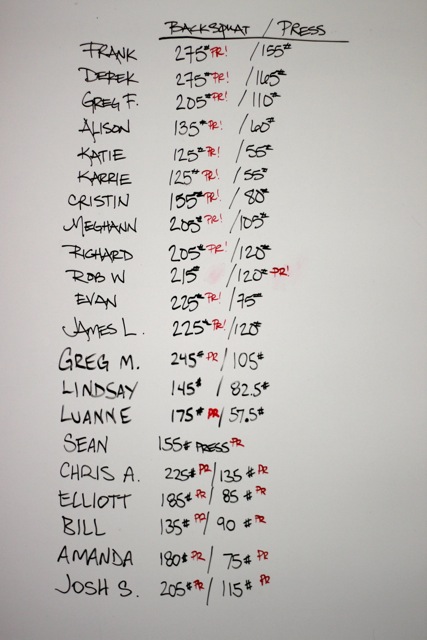 BACKSQUAT / PRESS
FRANK 275# PR! /155#
DEREK 275# PR! /165#
GREG F. 205# PR! /110#
ALISON 135# PR! /60#
KATIE 125# PR! /55#
KARRIE 125# PR! /55#
CRISTIN 155# PR! /80#
MEGHANN 205# PR! /105#
RICHARD 205# PR! /120#
ROB W 215# /120# PR!
EVAN 225# PR! /75#
JAMES L. 225# PR! /120#
GREG M. 245# PR /105#
LINDSAY 145# / 82.5#
LUANNE 175# PR/ 57.5#
SEAN 155# PRESS PR
CHRIS A. 225# PR /135 # PR
ELLIOTT 185# PR / 85 # PR
BILL 135# PR/ 90 # PR
AMANDA 180# PR / 75# PR
JOSH S. 205# PR / 115# PR